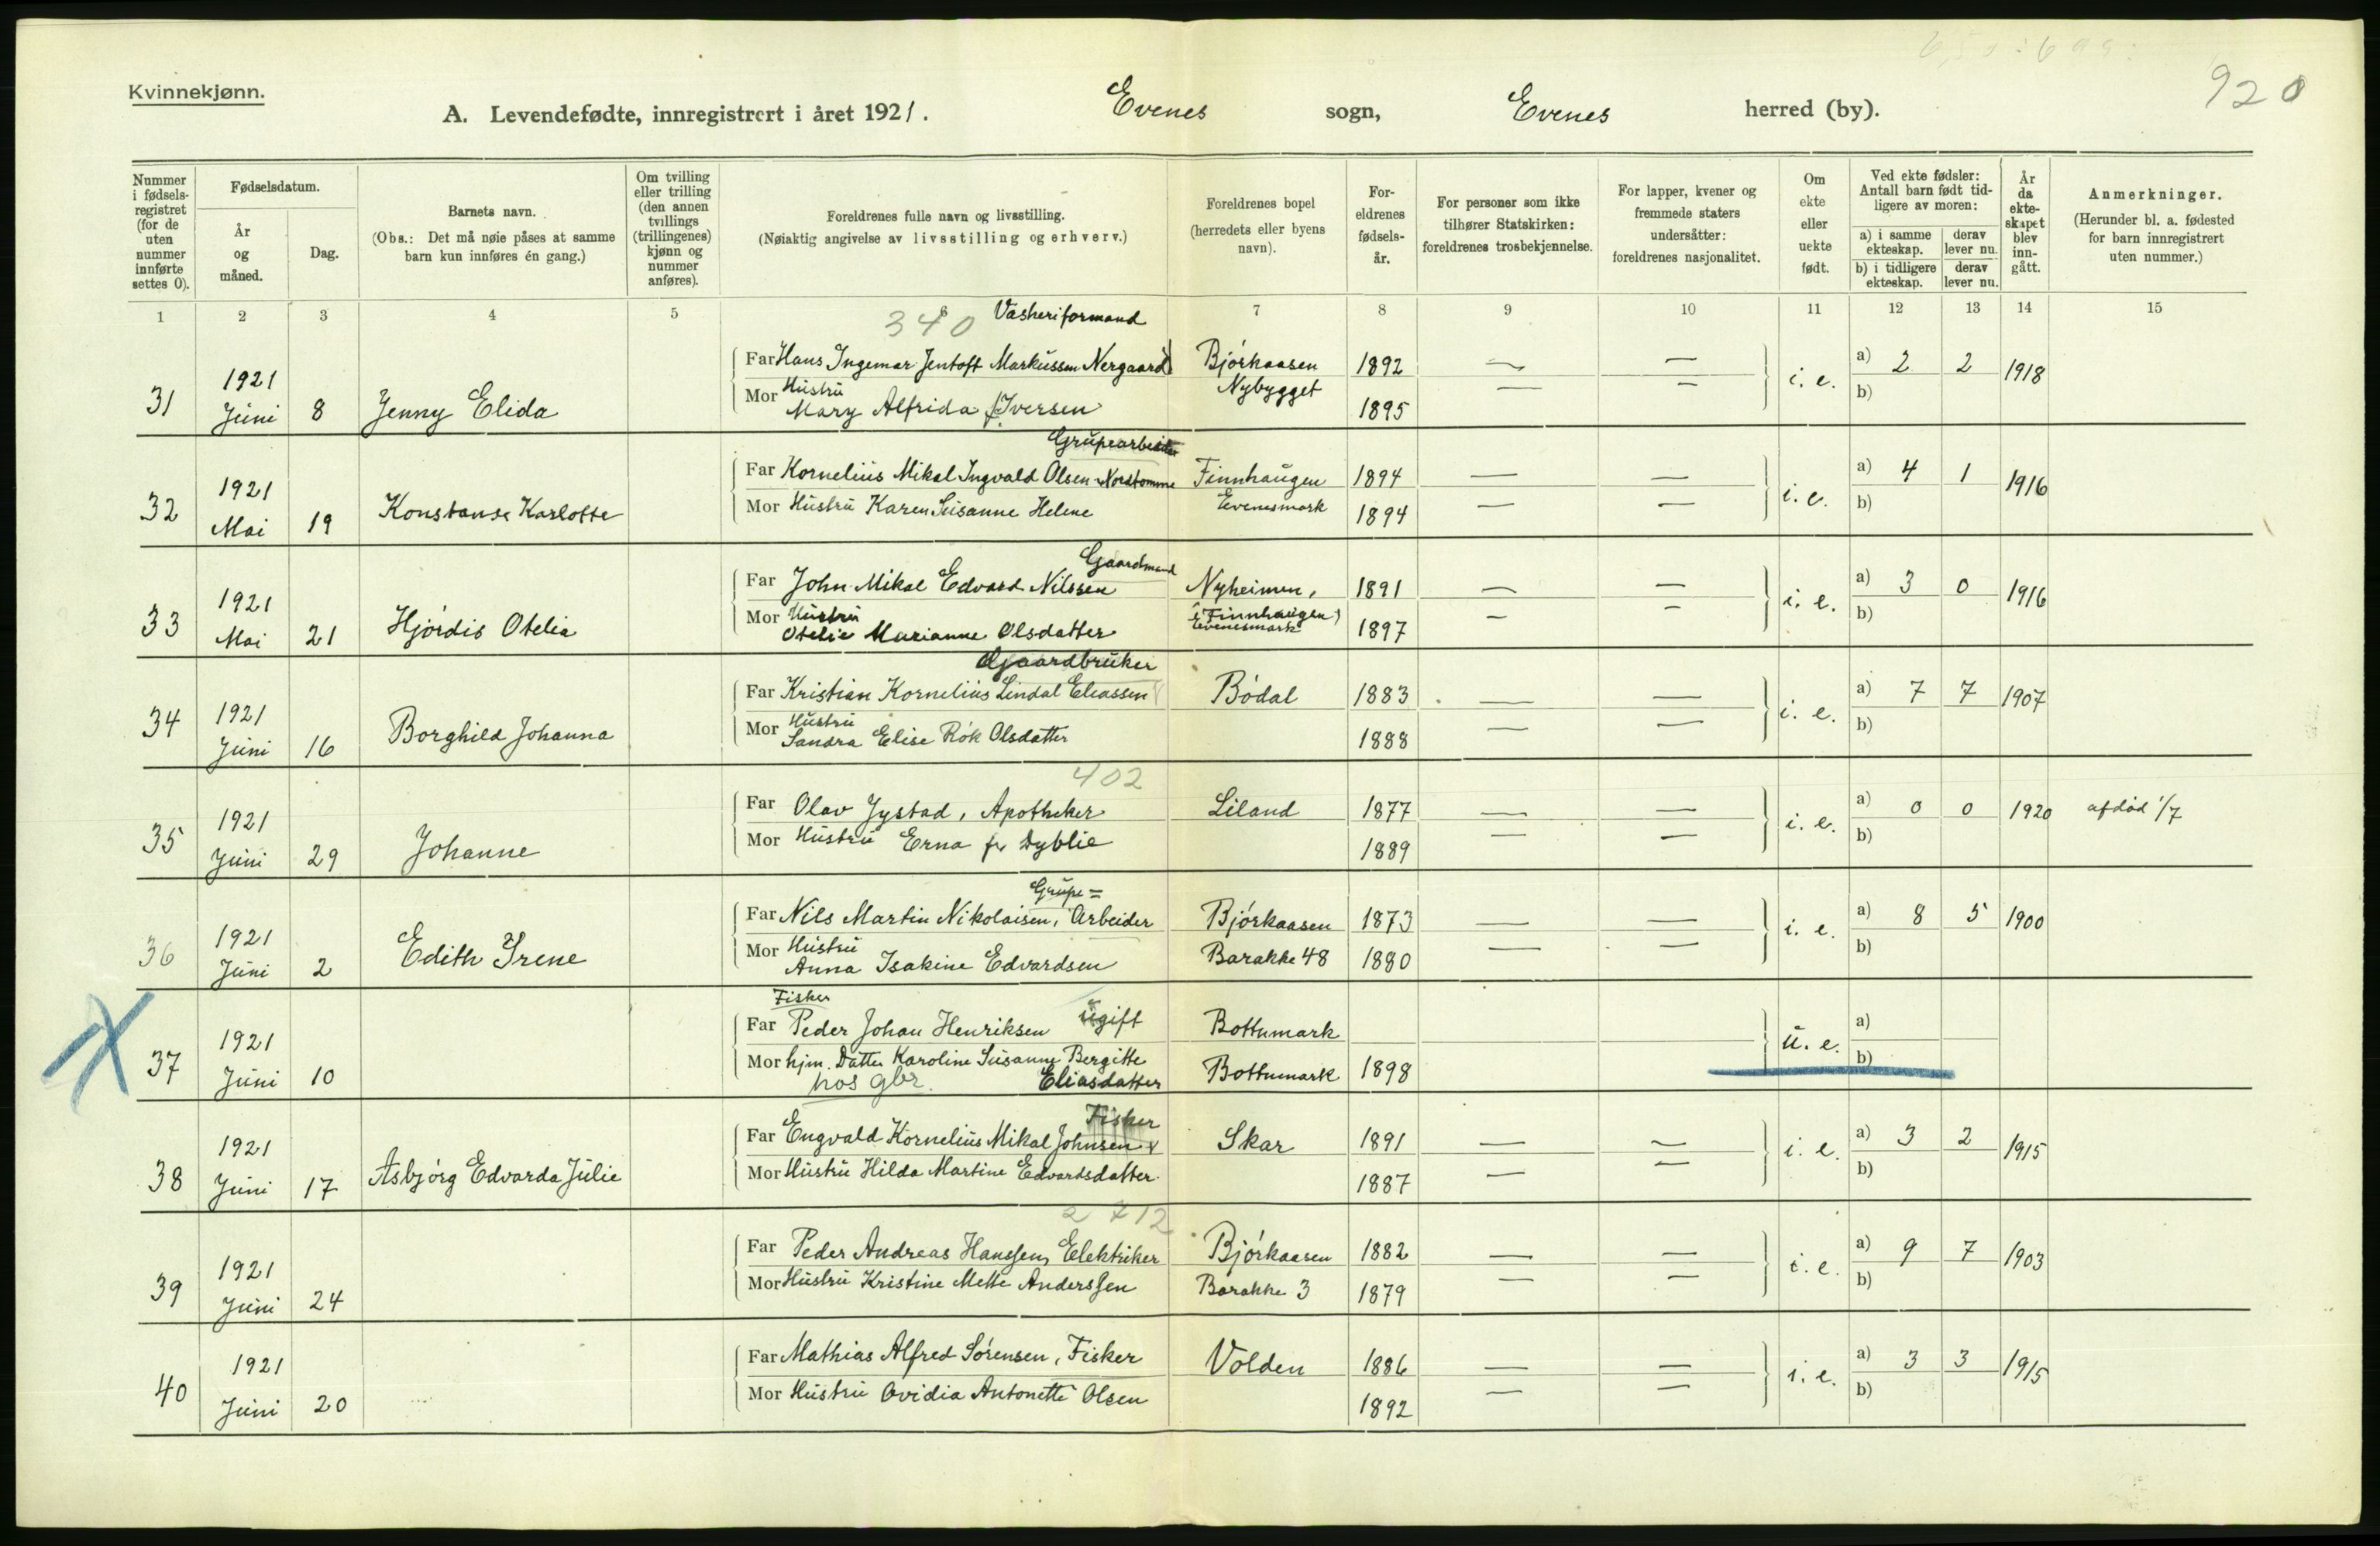 Kvinnekjønn.
920
A. Levendefødte, innregistrert i året 1921. Evenes sogn, Evenes herred (by).
Nummer i fødselsregistret (for de uten nummer innførte settes 0).
Fødselsdatum.
År og måned.
Dag.
Barnets navn.
(Obs.: Det må nøie påses at samme barn kun innføres én gang.)
Om tvilling eller trilling (den annen tvillings (trillingenes) kjønn og nummer anføres).
Foreldrenes fulle navn og livsstilling.
(Nøiaktig angivelse av livsstilling og erhverv.)
Foreldrenes bopel (herredets eller byens navn).
Foreldrenes fødselsår.
For personer som ikke tilhører Statskirken: foreldrenes trosbekjennelse.
For lapper, kvener og fremmede staters undersåtter: foreldrenes nasjonalitet.
Om ekte eller uekte født.
Ved ekte fødsler: Antall barn født tidligere av moren:
a) i samme ekteskap. derav lever nu.
b) i tidligere ekteskap. derav lever nu.
År da ekteskapet blev inngått.
Anmerkninger.
(Herunder bl. a. fødested for barn innregistrert uten nummer.)
1 2 3 4 5 6 7 8 9 10 11 12 13 14 15
340 Vasheriformand
Far Hans Ingemar Jentoft Markussen Nergaard Bjórkaasen 1892 — — a) 2 2 1918
31 1921 Juni 8 Jenny Elida
Mor Hustru Mary Alfrida f. Iversen Nybygget 1895 — — i. e. b)
Grupearbeider
Far Kornelius Mikal Ingvald Olsen Nordtomme Finnhaugen 1894 — — a) 4 1 1916
32 1921 Mai 19 Konstanse Karlotte
Mor Hustru Karen Susanne Helene Evenesmark 1894 — — i. e. b)
Gaardmand
Far John Mikal Edvard Nilssen Nyheimen, 1891 — — a) 3 0 1916
33 1921 Mai 21 Hjórdis Otelia
Mor Hustru Otelie Marianne Olsdatter (Finnhaugen) Evenesmark 1897 — — i. e. b)
Gaardbruker
Far Kristian Kornelius Lindal Eliassen Bódal 1883 — — a) 7 7 1907
34 1921 Juni 16 Borghild Johanna
Mor Hustru Sandra Elise Rók Olsdatter 1888 — — i. e. b)
402
Far Olav Jystad, Apotheker Liland 1877 — — a) 0 0 1920 afdód 1/7
35 1921 Juni 29 Johanne
Mor Hustru Erna f. Dyblie 1889 — — i. e. b)
Grupe=
Far Nils Martin Nikolaisen, Arbeider Bjórkaasen 1873 — — a) 8 5 1900
36 1921 Juni 2 Edith Irene
Mor Hustru Anna Isakine Edvardsen Barakke 48 1880 — — i. e. b)
Fisker
Far Peder Johan Henriksen ugift Bottumark a)
37 1921 Juni 10
Mor hjm. Datter Karoline Susanne Bergitte Eliasdatter Bottumark 1898 u. e. b)
hos gbr.
Fisker
Far Engvald Kornelius Mikal Johnsen Skar 1891 — — a) 3 2 1915
38 1921 Juni 17 Asbjórg Edvarda Julie
Mor Hustru Hilda Martine Edvardsdatter 1887 — — i. e. b)
Far Peder Andreas Hanssen, Elektriker Bjórkaasen 1882 — — a) 9 7 1903
39 1921 Juni 24
Mor Hustru Kristine Mette Anderssen Barakke 3 1879 — — i. e. b)
Far Mathias Alfred Sórensen, Fisker Volden 1886 — — a) 3 3 1915
40 1921 Juni 20
Mor Hustru Ovidia Antonette Olsen 1892 — — i. e. b)